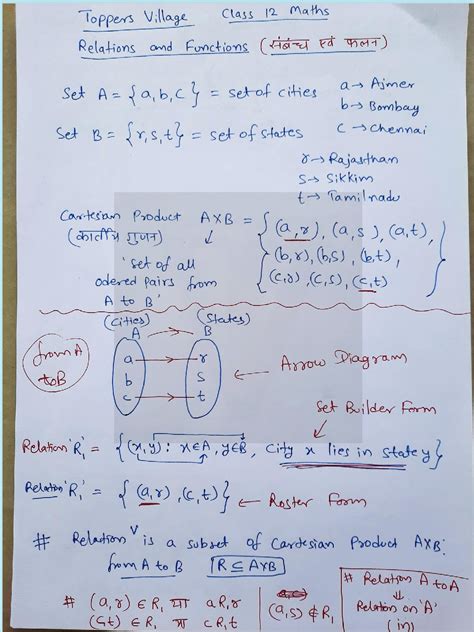 Toppers Village Class 12 Maths
Relations and Functions (संबंध एवं फलन)
Set A = {a, b, c} = set of cities a→ Ajmer
b→ Bombay
Set B = {r, s, t} = set of states c→ Chennai
r→ Rajasthan
s→ Sikkim
t→ Tamilnadu
Cartesian Product A×B = {(a,r), (a,s), (a,t),
(कार्तीय गुणन) ↓ (b,r), (b,s), (b,t),
'set of all (c,r), (c,s), (c,t)}
odered pairs from
A to B'
(Cities) (States)
A → B
from A
to B
a → r
b s
c → t
← Arrow Diagram
Set Builder Form
Relation 'R₁' = {(x,y): x∈A, y∈B, City x lies in state y}
Relation 'R₁' = {(a,r), (c,t)} ← Roster Form
# Relation is a subset of Cartesian Product A×B.
from A to B R ⊆ A×B
# Relation A to A
⇓
Relation on 'A'
(in)
# (a,r) ∈ R₁ या a R₁ r (a,s) ∉ R₁
(c,t) ∈ R₁ या c R₁ t